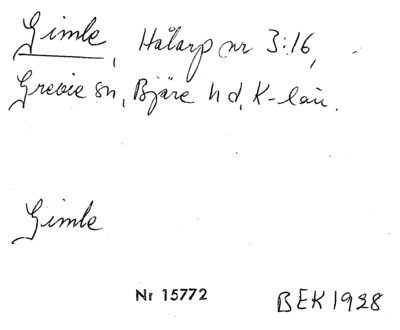 Gimle, Hålarp nr 3:16,
Grevie sn, Bjäre hd, K-län.
Gimle
Nr 15772
BEK 1928